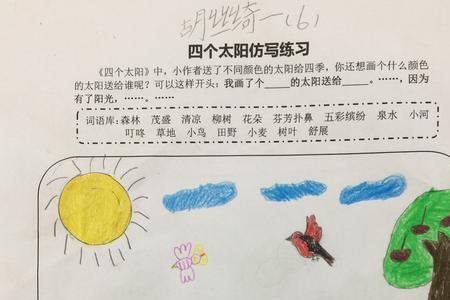 胡丝绮一(6)
四个太阳仿写练习
《四个太阳》中，小作者送了不同颜色的太阳给四季，你还想画个什么颜色
的太阳送给谁呢？可以这样开头：我画了个____的太阳送给____。……，因为
有了阳光，……。……
词语库：森林 茂盛 清凉 柳树 花朵 芬芳扑鼻 五彩缤纷 泉水 小河
叮咚 草地 小鸟 田野 小麦 树叶 舒展